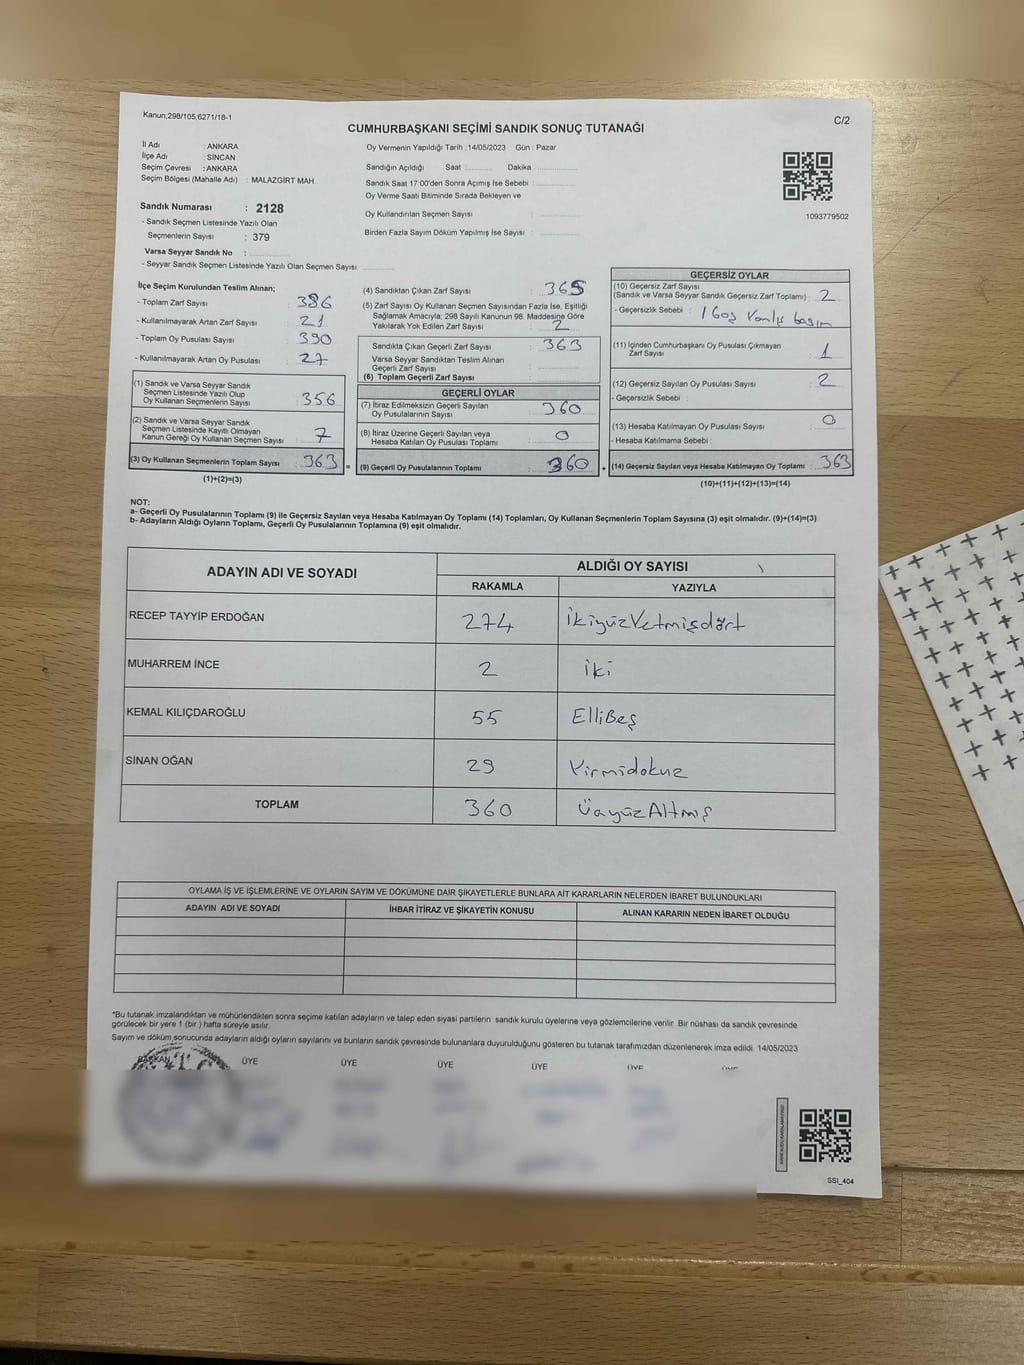 Kanun;298/105,6271/18-1
C/2
CUMHURBAŞKANI SEÇİMİ SANDIK SONUÇ TUTANAĞI
İl Adı : ANKARA
İlçe Adı : SİNCAN
Seçim Çevresi : ANKARA
Seçim Bölgesi (Mahalle Adı) : MALAZGİRT MAH.
Sandık Numarası : 2128
- Sandık Seçmen Listesinde Yazılı Olan
Seçmenlerin Sayısı : 379
Varsa Seyyar Sandık No :
- Seyyar Sandık Seçmen Listesinde Yazılı Olan Seçmen Sayısı:
Oy Vermenin Yapıldığı Tarih :14/05/2023 Gün : Pazar
Sandığın Açıldığı Saat : Dakika :
Sandık Saat 17:00'den Sonra Açımış İse Sebebi :
Oy Verme Saati Bitiminde Sırada Bekleyen ve
Oy Kullandırılan Seçmen Sayısı :
Birden Fazla Sayım Döküm Yapılmış İse Sayısı :
1093779502
İlçe Seçim Kurulundan Teslim Alınan;
- Toplam Zarf Sayısı : 386
- Kullanılmayarak Artan Zarf Sayısı : 21
- Toplam Oy Pusulası Sayısı : 390
- Kullanılmayarak Artan Oy Pusulası : 27
(1) Sandık ve Varsa Seyyar Sandık
Seçmen Listesinde Yazılı Olup
Oy Kullanan Seçmenlerin Sayısı : 356
(2) Sandık ve Varsa Seyyar Sandık
Seçmen Listesinde Kayıtlı Olmayan
Kanun Gereği Oy Kullanan Seçmen Sayısı : 7
(3) Oy Kullanan Seçmenlerin Toplam Sayısı : 363 =
(1)+(2)=(3)
(4) Sandıktan Çıkan Zarf Sayısı : 365
(5) Zarf Sayısı Oy Kullanan Seçmen Sayısından Fazla İse, Eşitliği
Sağlamak Amacıyla; 298 Sayılı Kanunun 98. Maddesine Göre
Yakılarak Yok Edilen Zarf Sayısı : 2
Sandıkta Çıkan Geçerli Zarf Sayısı : 363
Varsa Seyyar Sandıktan Teslim Alınan
Geçerli Zarf Sayısı :
(6) Toplam Geçerli Zarf Sayısı :
GEÇERLİ OYLAR
(7) İtiraz Edilmeksizin Geçerli Sayılan
Oy Pusulalarının Sayısı : 360
(8) İtiraz Üzerine Geçerli Sayılan veya
Hesaba Katılan Oy Pusulası Toplamı : 0
(9) Geçerli Oy Pusulalarının Toplamı : 360 +
GEÇERSİZ OYLAR
(10) Geçersiz Zarf Sayısı
(Sandık ve Varsa Seyyar Sandık Geçersiz Zarf Toplamı) : 2
- Geçersizlik Sebebi : 1 boş
(11) İçinden Cumhurbaşkanı Oy Pusulası Çıkmayan
Zarf Sayısı : 1
(12) Geçersiz Sayılan Oy Pusulası Sayısı : 2
- Geçersizlik Sebebi :
(13) Hesaba Katılmayan Oy Pusulası Sayısı : 0
- Hesaba Katılmama Sebebi :
(14) Geçersiz Sayılan veya Hesaba Katılmayan Oy Toplamı : 363
(10)+(11)+(12)+(13)=(14)
NOT:
a- Geçerli Oy Pusulalarının Toplamı (9) ile Geçersiz Sayılan veya Hesaba Katılmayan Oy Toplamı (14) Toplamları, Oy Kullanan Seçmenlerin Toplam Sayısına (3) eşit olmalıdır. (9)+(14)=(3)
b- Adayların Aldığı Oyların Toplamı, Geçerli Oy Pusulalarının Toplamına (9) eşit olmalıdır.
ADAYIN ADI VE SOYADI
ALDIĞI OY SAYISI
RAKAMLA YAZIYLA
RECEP TAYYİP ERDOĞAN 274 İkiyüzYetmişdört
MUHARREM İNCE 2 iki
KEMAL KILIÇDAROĞLU 55 ElliBeş
SİNAN OĞAN 29 Yirmidokuz
TOPLAM 360 ÜçyüzAltmış
OYLAMA İŞ VE İŞLEMLERİNE VE OYLARIN SAYIM VE DÖKÜMÜNE DAİR ŞİKAYETLERLE BUNLARA AİT KARARLARIN NELERDEN İBARET BULUNDUKLARI
ADAYIN ADI VE SOYADI İHBAR İTİRAZ VE ŞİKAYETİN KONUSU ALINAN KARARIN NEDEN İBARET OLDUĞU
*Bu tutanak imzalandıktan ve mühürlendikten sonra seçime katılan adayların ve talep eden siyasi partilerin sandık kurulu üyelerine veya gözlemcilerine verilir Bir nüshası da sandık çevresinde
görülecek bir yere 1 (bir ) hafta süreyle asılır.
Sayım ve döküm sonucunda adayların aldığı oyların sayılarını ve bunların sandık çevresinde bulunanlara duyurulduğunu gösteren bu tutanak tarafımızdan düzenlenerek imza edildi. 14/05/2023
BAŞKAN ÜYE ÜYE ÜYE ÜYE ÜYE ÜYE
SSİ_404